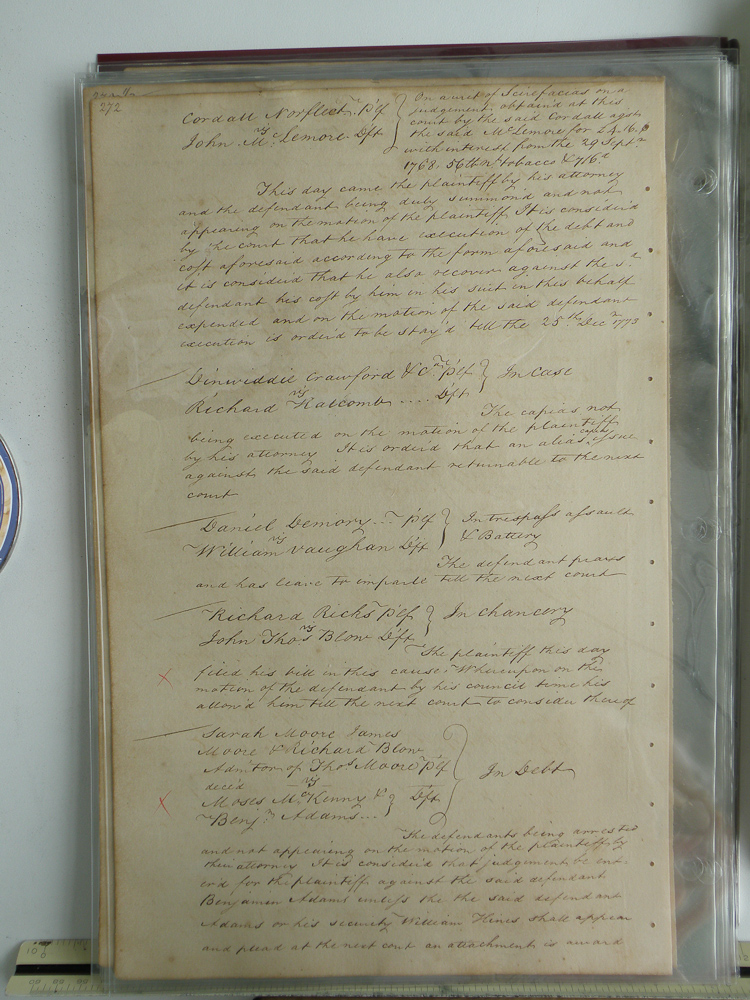 272
Cordall Norfleet Plf
vs
John McLemore Dft
On a writ of Scirefacias on a
judgement obtain'd at this
court by the said Cordall agst
the said McLemore for
with interest from the 29 Septr
1768. 56 lb nt tobacco &
This day came the plaintiff by his attorney
and the defendant being duly summon'd and not
appearing on the motion of the plaintiff It is consider'd
by the court that he have execution of the debt and
cost aforesaid according to the form aforesaid and
it is considerd that he also recover against the sd
defendant his cost by him in his suit in this behalf
expended and on the motion of the said defendant
execution is order'd to be stay'd till the 25th Decr 1773
Dinwiddie Crawford & Co Plf
vs
Richard Ratcomb .... Dft
In Case
The capias not
being executed on the motion of the plaintiff
by his attorney It is order'd that an alias capias issue
against the said defendant returnable to the next
court
Daniel Demory ... Plf
vs
William Vaughan Dft
In trespass assault
& Battery
The defendant prays
and has leave to imparle till the next court
Richard Ricks Plf
vs
John Thos Blow Dft
In chancery
The plaintiff this day
filed his bill in this cause Whereupon on the
motion of the defendant by his council time his
allow'd him till the next court to consider thereof
Sarah Moore James
Moore & Richard Blow
Admtor of Thos Moore Plf
dec'd
vs
Moses McKenny & Dft
Benjn Adams ...
In Debt
The defendants being arrested
and not appearing on the motion of the plaintiffs by
their attorney It is consider'd that judgement be ent-
er'd for the plaintiff against the said defendant
Benjamin Adams unless the the said defendant
Adams or his security William Hines shall appear
and plead at the next court an attachment is award